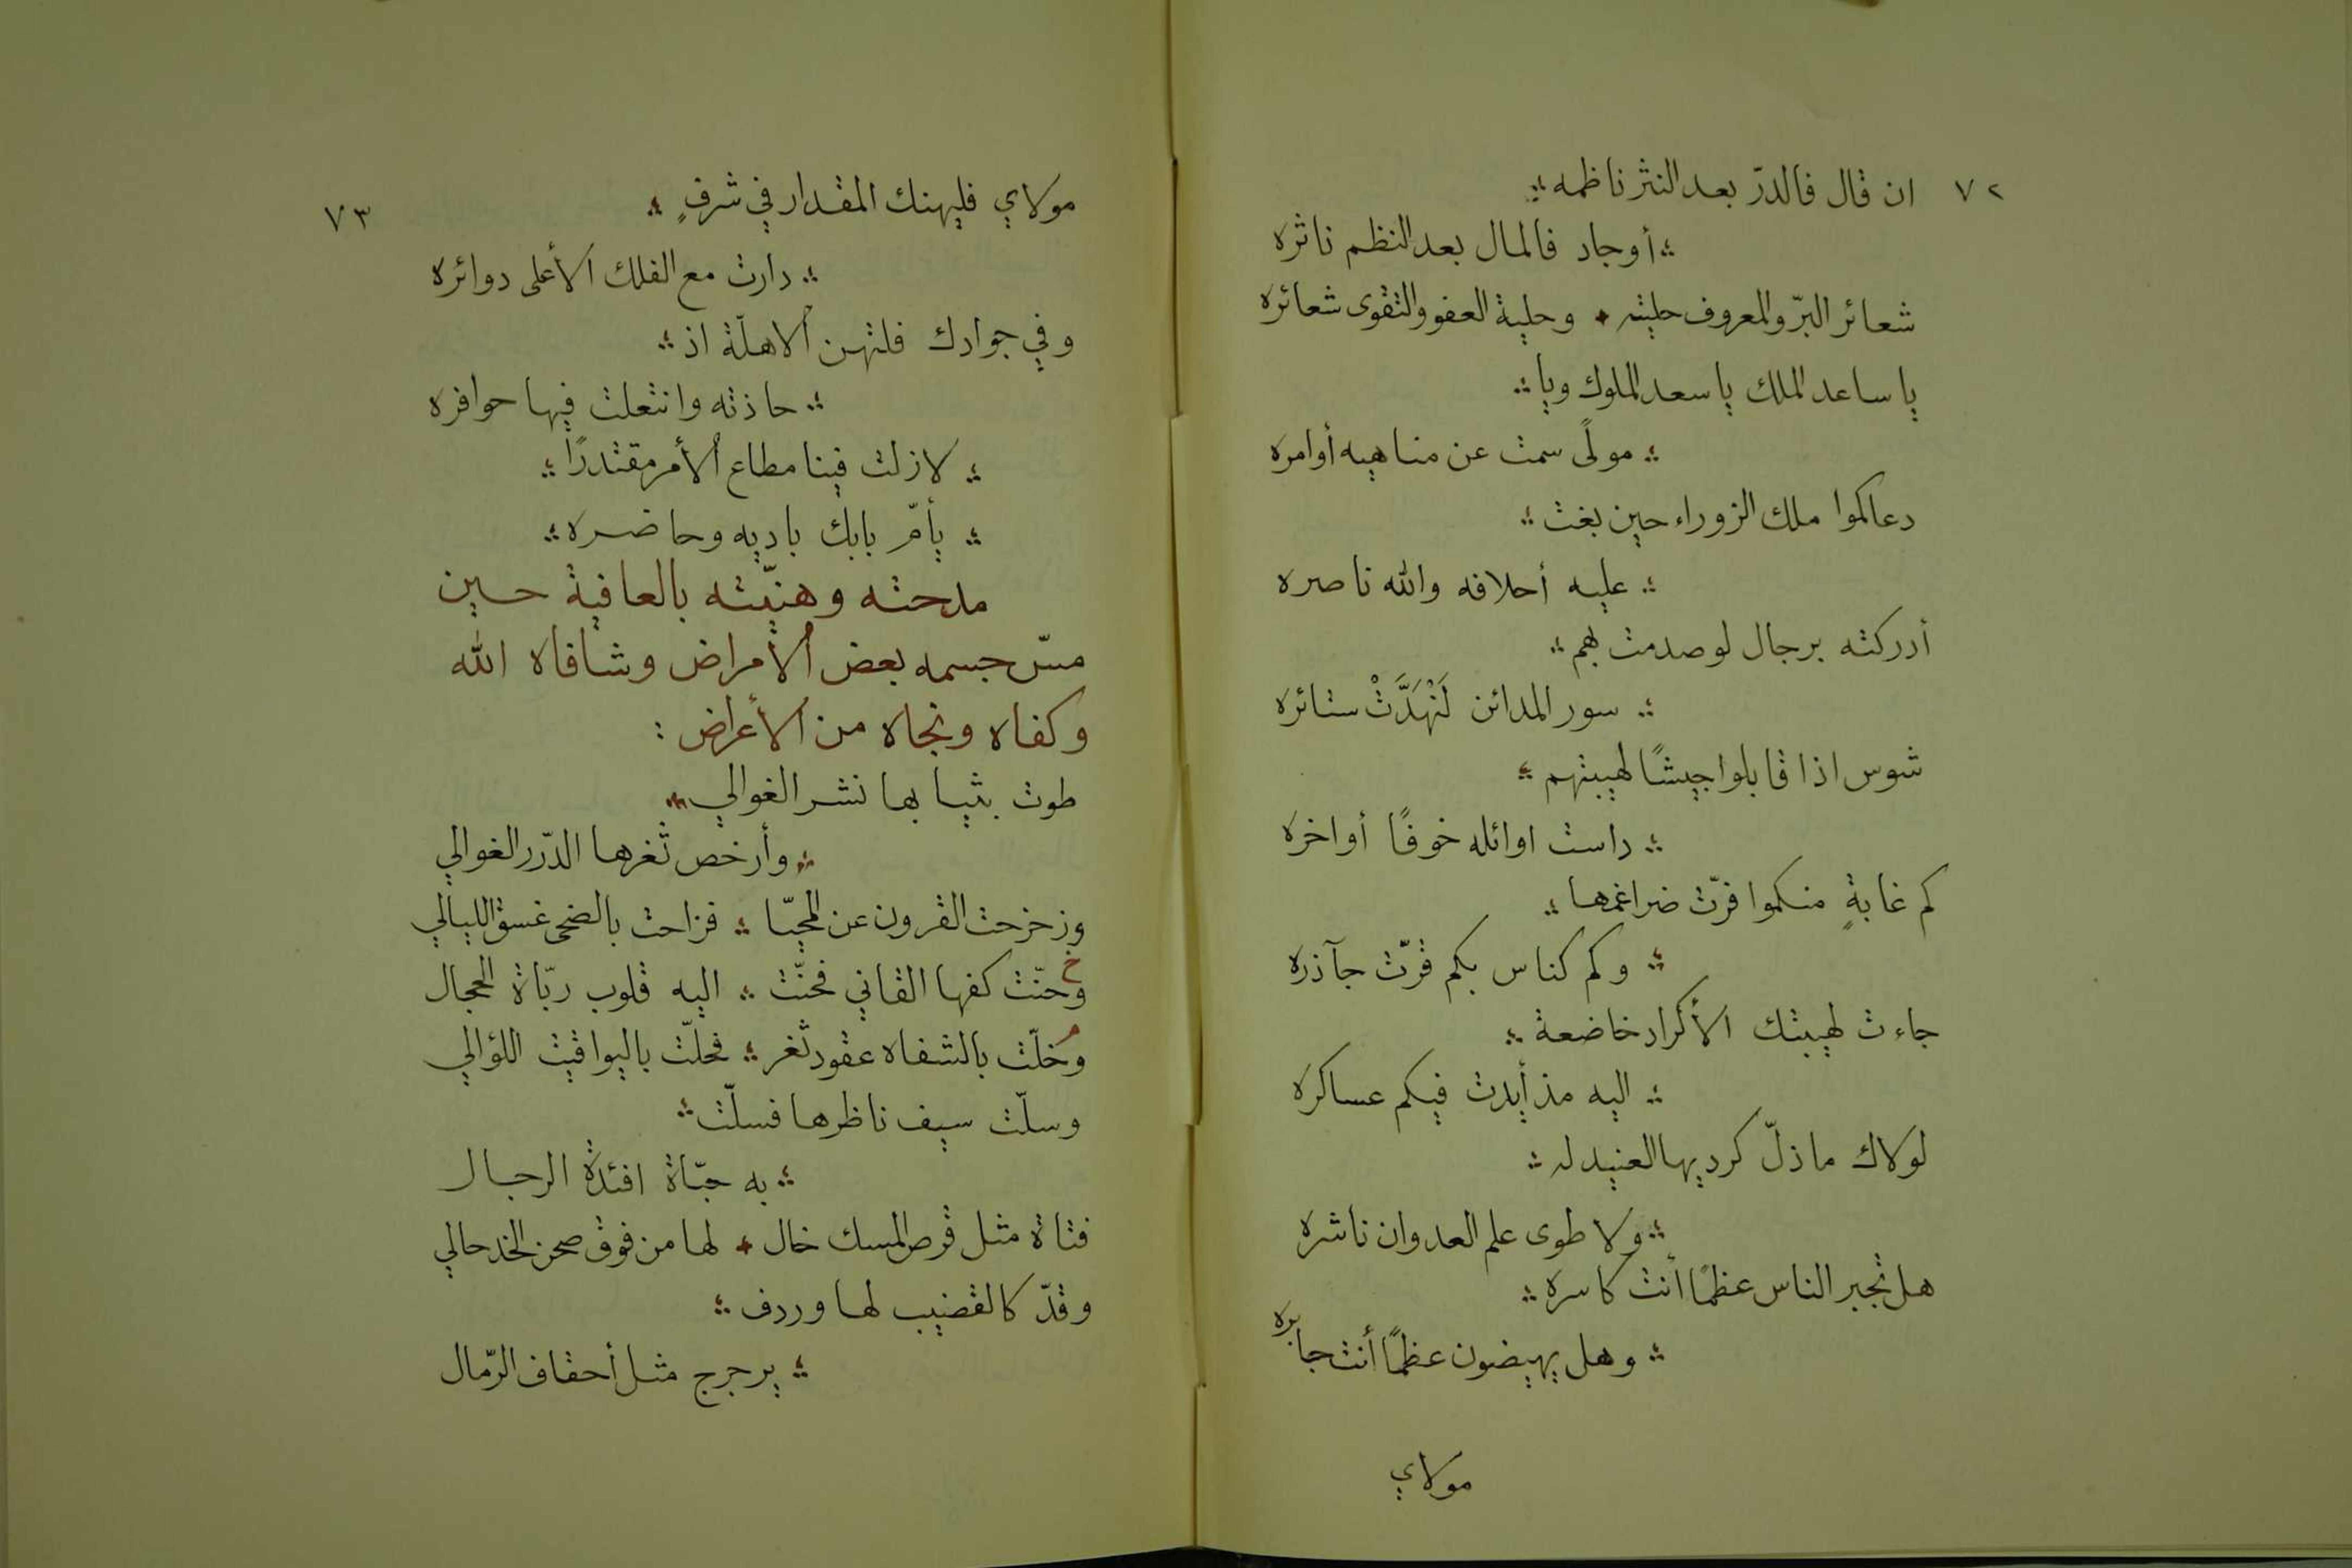 ٧٢
ان قال فالدرّ بعد النثر ناظمه
أوجاد فالمال بعد النظم ناثره
شعائر البرّ والمعروف حليته وحلية العفو والتقوى شعائره
يا ساعد الملك يا سعد الملوك ويا
مولًى سمت عن مناهيه أوامره
دعاكموا ملك الزوراء حين بغت
عليه أحلافه والله ناصره
أدركته برجال لو صدمت بهم
سور المدائن لَنْهَدَّتْ ستائره
شوس اذا قابلوا جيشًا لهيبتهم
داست اوائله خوفًا أواخره
كم غابةٍ منكموا فرّت ضراغمها
وكم كناس بكم قرّت جآذره
جاءت لهيبتك الأكراد خاضعة
اليه مذ أيدت فيكم عساكره
لولاك ما ذلّ كرديها العنيد له
ولا طوى علم العدوان ناشره
هل تجبر الناس عظمًا أنت كاسره
وهل يهيضون عظمًا أنت جابره
مولاي
٧٣
مولاي فليهنك المقدار في شرفٍ
دارت مع الفلك الأعلى دوائره
وفي جوادك فلتهن الاهلّة اذ
حاذته وانتعلت فيها حوافره
لازلت فينا مطاع الأمر مقتدرًا
يأمّ بابك باديه وحاضره
مدحته وهنّيته بالعافية حين
مسّ جسمه بعض الأمراض وشافاه الله
وكفاه ونجاه من الأعراض :
طوت بثيابها نشر الغوالي
وأرخص ثغرها الدّرر الغوالي
وزحزحت القرون عن المحيّا فزاحت بالضحى غسق الليالي
خ
وحنّت كفها القاني فحنّت اليه قلوب ربّاة الحجال
وخلّت بالشفاه عقود ثغر فحلّت باليواقيت اللؤالي
وسلّت سيف ناظرها فسلّت
به حبّاة افئدة الرجال
فتاة مثل قرص المسك خال لها من فوق صحن الخد حالي
وقدّ كالقضيب لها وردف
يرجرج مثل أحقاف الرّمال